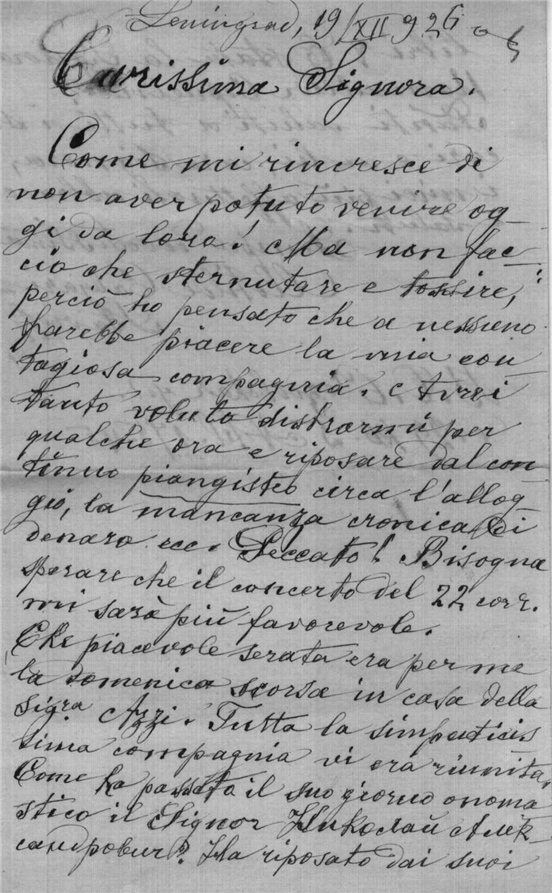 Leningrad, 19/XII 926
Carissima Signora.
Come mi rincresce di
non aver potuto venire og-
gi da loro! Ma non fac-
cio che sternutare e tossire,
perciò ho pensato che a nessuno
farebbe piacere la mia con
tagiosa compagnia. Avrei
tanto voluto distrarmi per
qualche ora e riposare dal con
tinuo piangisteo circa l'allog-
gio, la mancanza cronica di
denaro ecc. Peccato! Bisogna
sperare che il concerto del 22 corr.
mi sarà più favorevole.
Che piacevole serata era per me
la domenica scorsa in casa della
Sigra Azzi. Tutta la simpaticis
sima compagnia vi era riunita.
Come ha passato il suo giorno onoma-
stico il Signor Николай Алек-
сандрович? Ha riposato dai suoi